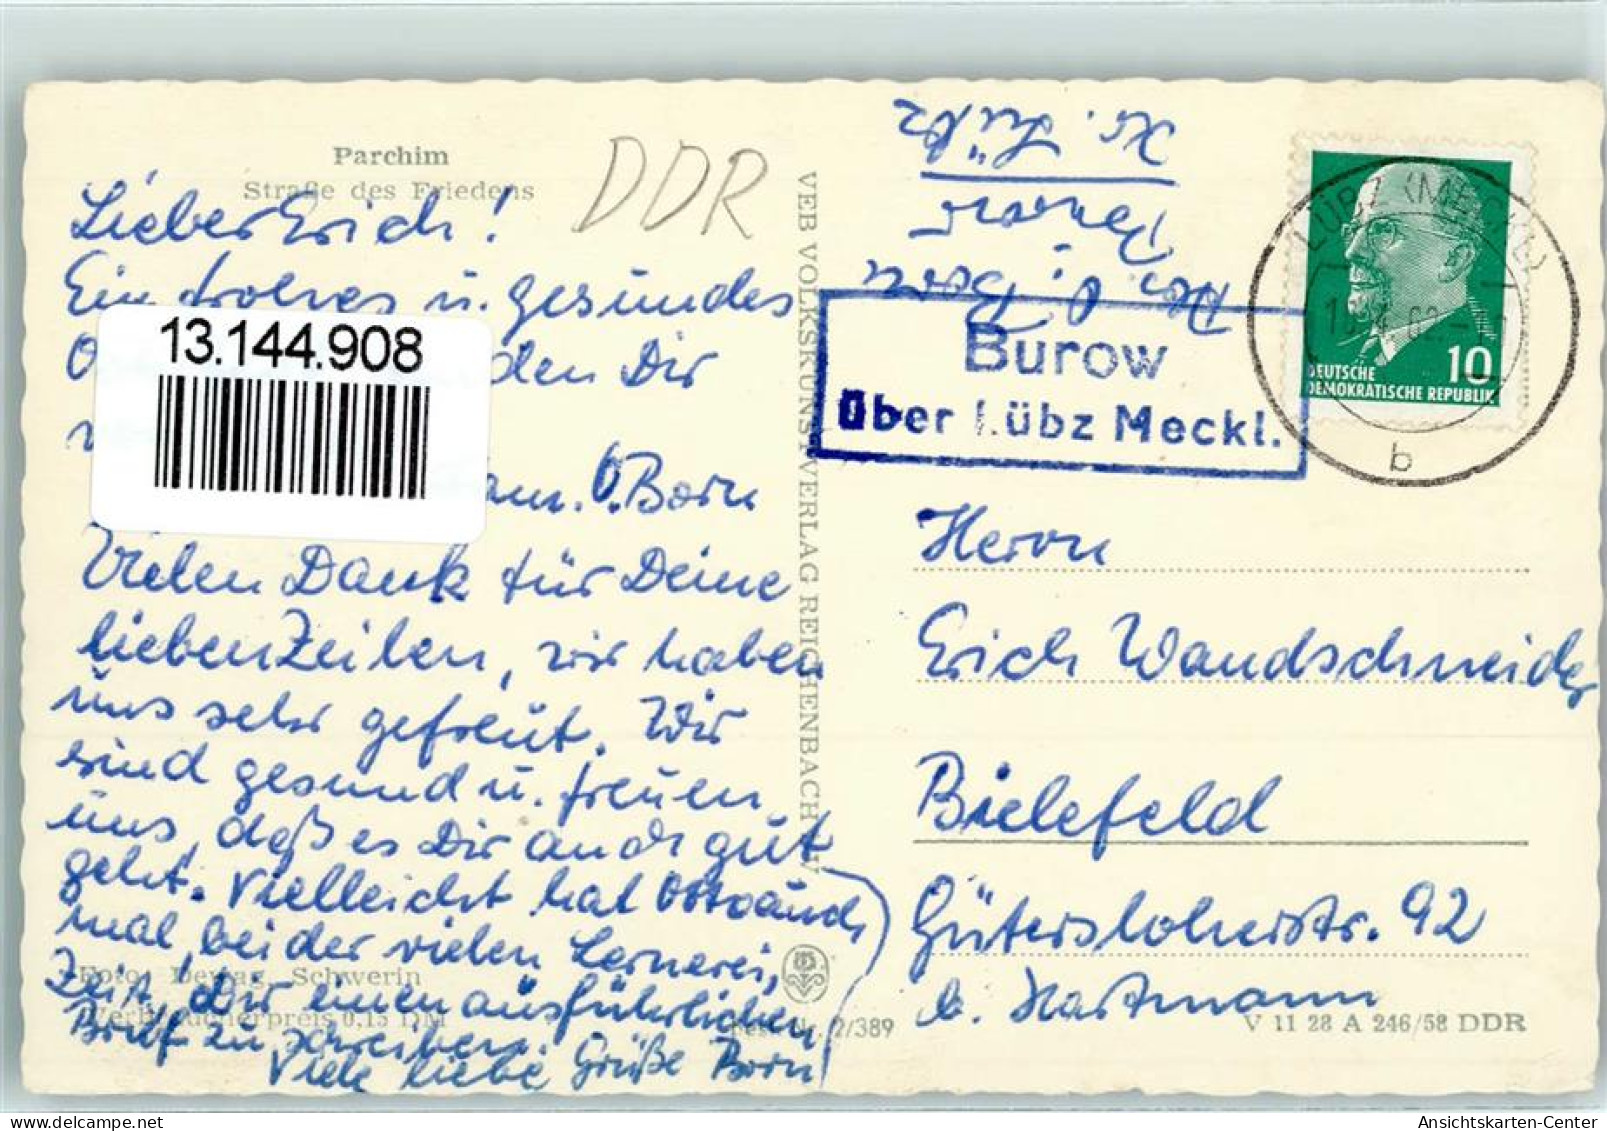 Parchim
Straße des Friedens
DDR
Lieber Erich!
Ein frohes u. gesundes
den Dir
13.144.908
am. O. Born
Vielen Dank für Deine
lieben Zeilen, wir haben
uns sehr gefreut. Wir
sind gesund u. freuen
uns, daß es Dir auch gut
geht. Vielleicht hat
mal bei der vielen Lernerei,
Zeit, Dir einen ausführlichen
Brief zu schreiben.
Viele liebe Grüße Born
Foto: Dewag, Schwerin
Verbraucherpreis 0,15 DM
2/389
VEB VOLKSKUNSTVERLAG REICHENBACH V
Abs. O. Born
Burow
Kr. Lübz
Burow
über Lübz Meckl.
LÜBZ (MECKL)
b
10
DEUTSCHE
DEMOKRATISCHE REPUBLIK
Herrn
Erich Wandschneider
Bielefeld
Gütersloherstr. 92
b. Hartmann
V 11 28 A 246/58 DDR
Ansichtskarten-Center